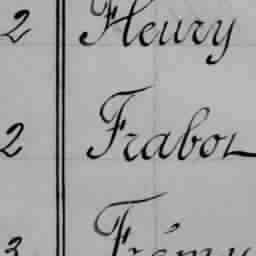 2 Fleury
2 Frabot
3 Frémy